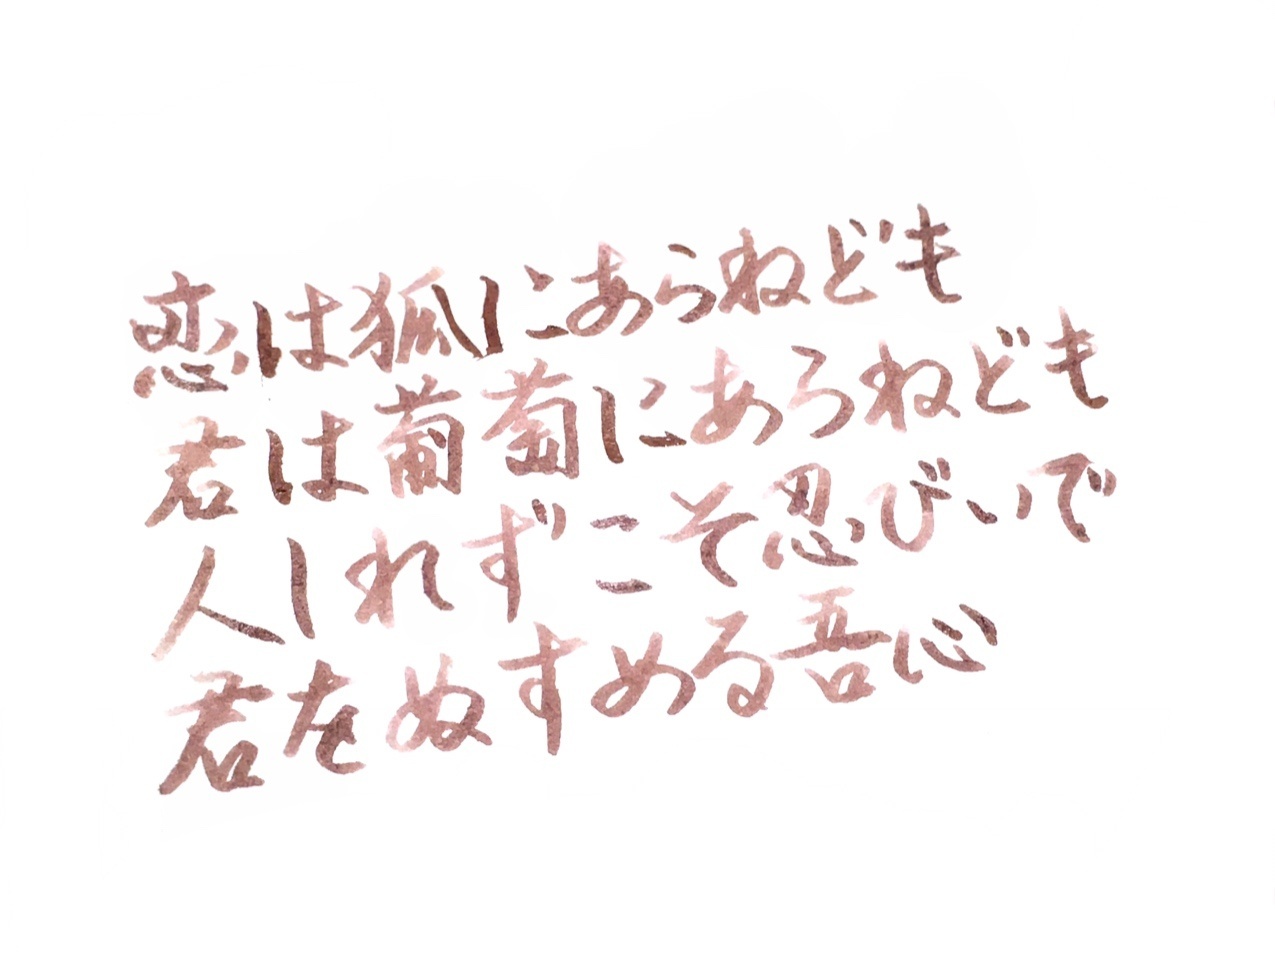 恋は狐にあらねども
君は葡萄にあらねども
人しれずこそ忍びいで
君をぬすめる吾心